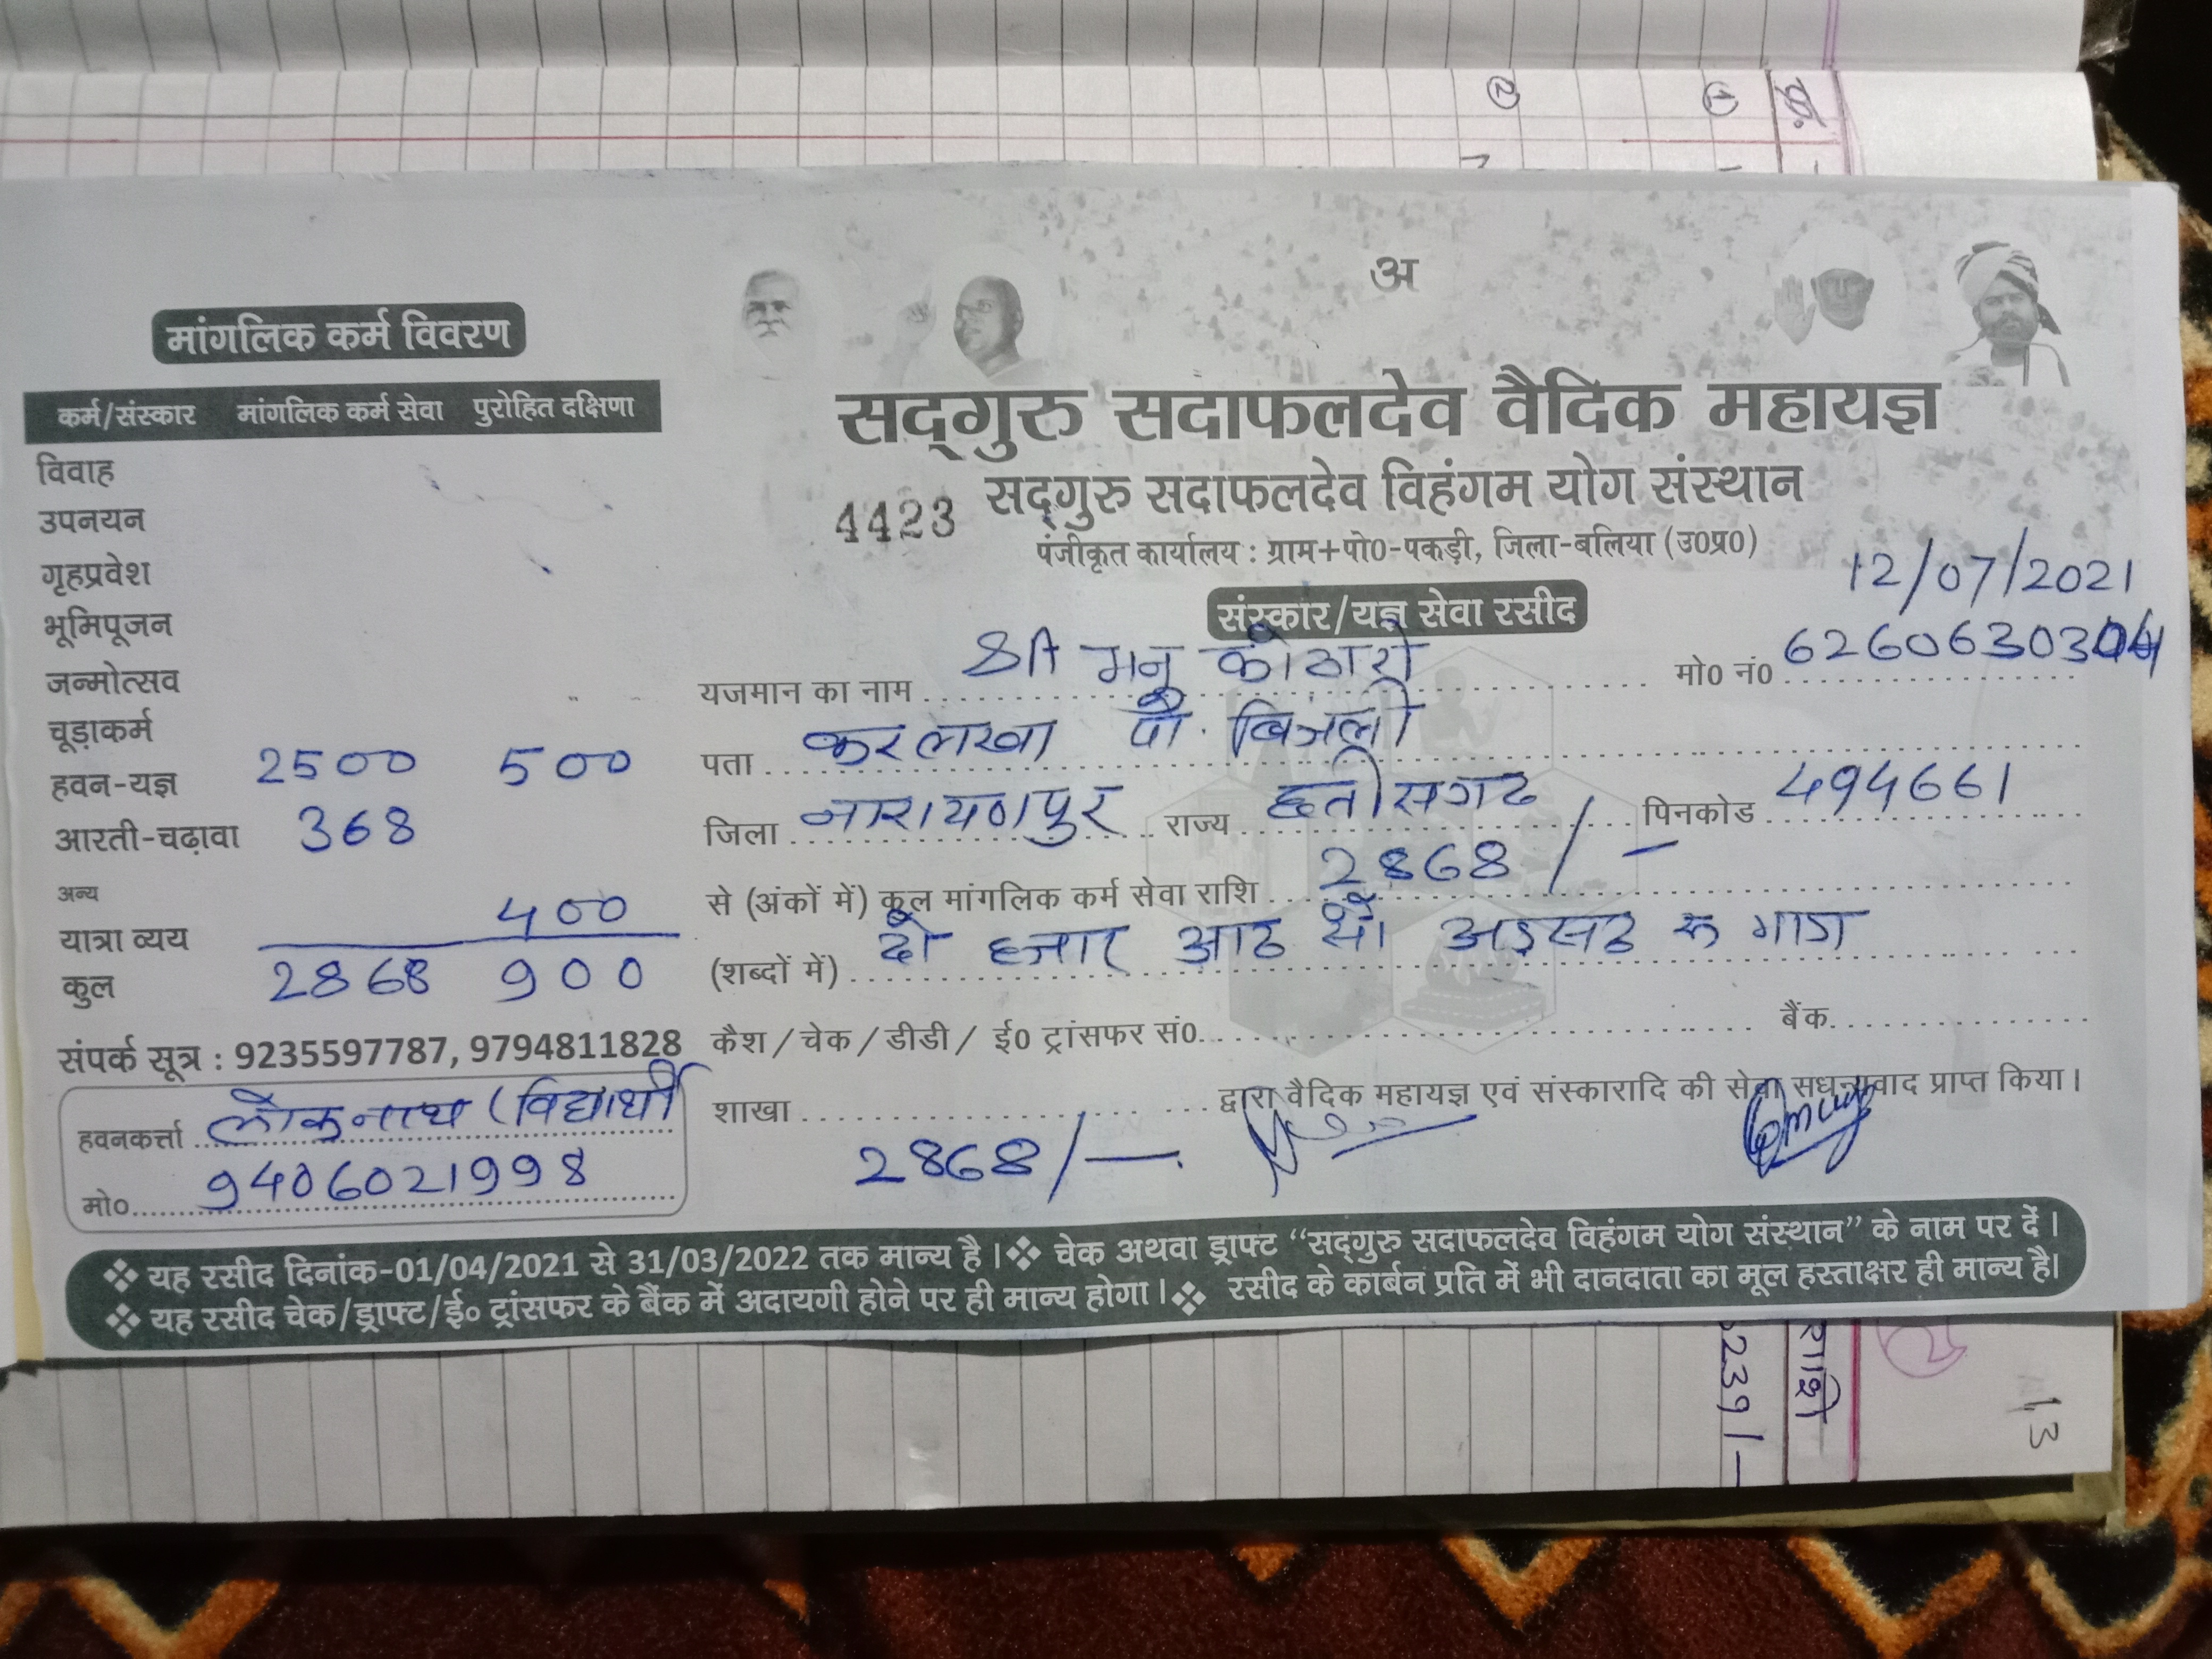 ② ① क्र.
अ
मांगलिक कर्म विवरण
कर्म/संस्कार मांगलिक कर्म सेवा पुरोहित दक्षिणा
विवाह
उपनयन
गृहप्रवेश
भूमिपूजन
जन्मोत्सव
चूड़ाकर्म
हवन-यज्ञ 2500 500
आरती-चढ़ावा 368
अन्य
यात्रा व्यय 400
कुल 2868 900
संपर्क सूत्र : 9235597787, 9794811828
हवनकर्त्ता लोकनाथ (विद्यार्थी
मो0 9406021998
सद्गुरु सदाफलदेव वैदिक महायज्ञ
4423 सद्गुरु सदाफलदेव विहंगम योग संस्थान
पंजीकृत कार्यालय : ग्राम+पो0-पकड़ी, जिला-बलिया (उ0प्र0)
12/07/2021
संस्कार/यज्ञ सेवा रसीद
यजमान का नाम श्री मनु कोठारी मो0 नं0 6260630304
पता करलखा पो. बिंजली
जिला नारायणपुर राज्य छत्तीसगढ पिनकोड 494661
से (अंकों में) कुल मांगलिक कर्म सेवा राशि 2868/-
(शब्दों में) दो हजार आठ सौ अड़सठ रू मात्र
कैश / चेक / डीडी / ई0 ट्रांसफर सं0 बैंक
शाखा द्वारा वैदिक महायज्ञ एवं संस्कारादि की सेवा सधन्यवाद प्राप्त किया।
2868/-
❖ यह रसीद दिनांक-01/04/2021 से 31/03/2022 तक मान्य है। ❖ चेक अथवा ड्राफ्ट “सद्गुरु सदाफलदेव विहंगम योग संस्थान” के नाम पर दें।
❖ यह रसीद चेक/ड्राफ्ट/ई० ट्रांसफर के बैंक में अदायगी होने पर ही मान्य होगा। ❖ रसीद के कार्बन प्रति में भी दानदाता का मूल हस्ताक्षर ही मान्य है।
राशी
239/-
13